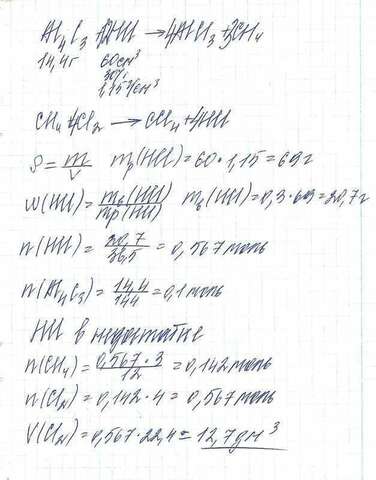 Al₄C₃ + 12HCl → 4AlCl₃ + 3CH₄
14,4г 60см³
30%
1,15г/см³
CH₄ + 4Cl₂ → CCl₄ + 4HCl
ρ = m/V mр(HCl) = 60 · 1,15 = 69г
w(HCl) = mв(HCl)/mр(HCl) mв(HCl) = 0,3 · 69 = 20,7г
n(HCl) = 20,7/36,5 = 0,567 моль
n(Al₄C₃) = 14,4/144 = 0,1 моль
HCl в недостатке
n(CH₄) = 0,567 · 3/12 = 0,142 моль
n(Cl₂) = 0,142 · 4 = 0,567 моль
V(Cl₂) = 0,567 · 22,4 = 12,7дм³